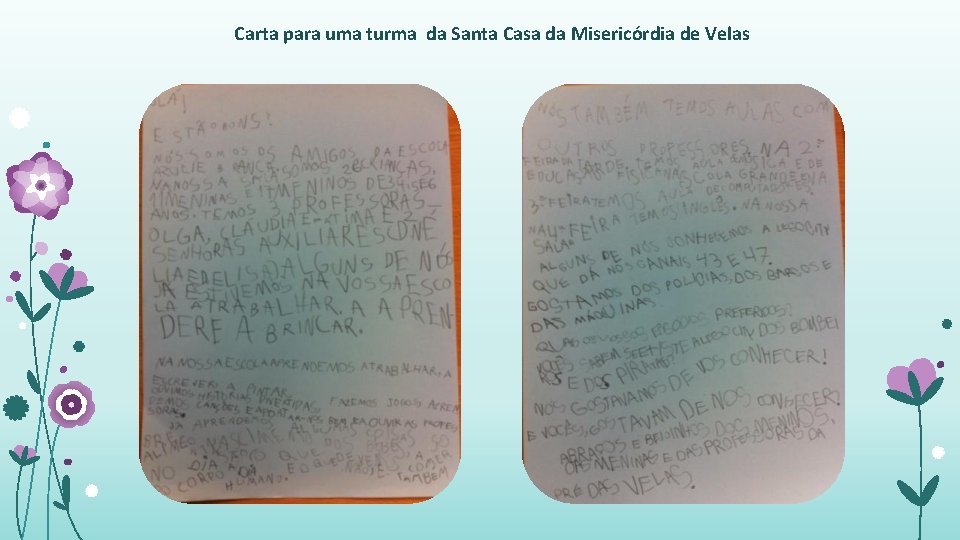 Carta para uma turma da Santa Casa da Misericórdia de Velas
OLÁ!
ESTÃO BONS?
NÓS SOMOS OS AMIGOS DA ESCOLA
SOMOS 26 CRIANÇAS.
NA NOSSA MENINOS DE 3 4 5 E 6
11 MENINAS
ANOS. TEMOS 3 PROFESSORAS
OLGA, CLAUDIA E FATIMA E 2
SENHORAS AUXILIARES
ALGUNS DE NÓS
JÁ ESTIVEMOS NA VOSSA ESCO
LA A TRABALHAR. A APREN
DERE A BRINCAR.
NA NOSSA ESCOLA APRENDEMOS A TRABALHAR, A
ESCREVER, A PINTAR
OUVIMOS HISTÓRIAS FAZEMOS JOGOS APREN
DEMOS CANÇÕES E
SORAS. JÁ APRENDEMOS ALGUMAS COISAS SO
BRE O NASCIMENTO DOS BEBÉS SO
ALIMENTO QUE COMER
NO DIA A DIA
O CORPO HUMANO. TAMBÉM
NÓS TAMBÉM TEMOS AULAS COM
OUTROS PROFESSORES. NA 2ª
FEIRA DA TARDE, TEMOS AULA DE MÚSICA E DE
EDUCAÇÃO FÍSICA NA SALA GRANDE E NA
3ª FEIRA TEMOS AULA DE COMPUTADORES.
NA 4ª FEIRA TEMOS INGLÊS. NA NOSSA
SALA
ALGUNS DE NÓS CONHECEMOS A LEGOCITY
QUE DÁ NOS CANAIS 43 E 47.
GOSTAMOS DOS POLICIAS, DOS BARCOS E
DAS MÁQUINAS.
QUAIS OS VOSSOS EPISÓDIOS PREFERIDOS?
VOCÊS SABEM SE EXISTE A LEGOCITY DOS BOMBEI
ROS E DOS PIRATAS?
NÓS GOSTAVAMOS DE VOS CONHECER!
E VOCÊS, GOSTAVAM DE NOS CONHECER?
ABRAÇOS E BEIJINHOS DOS MENINOS,
DAS MENINAS E DAS PROFESSORAS DA
PRÉ DAS VELAS.